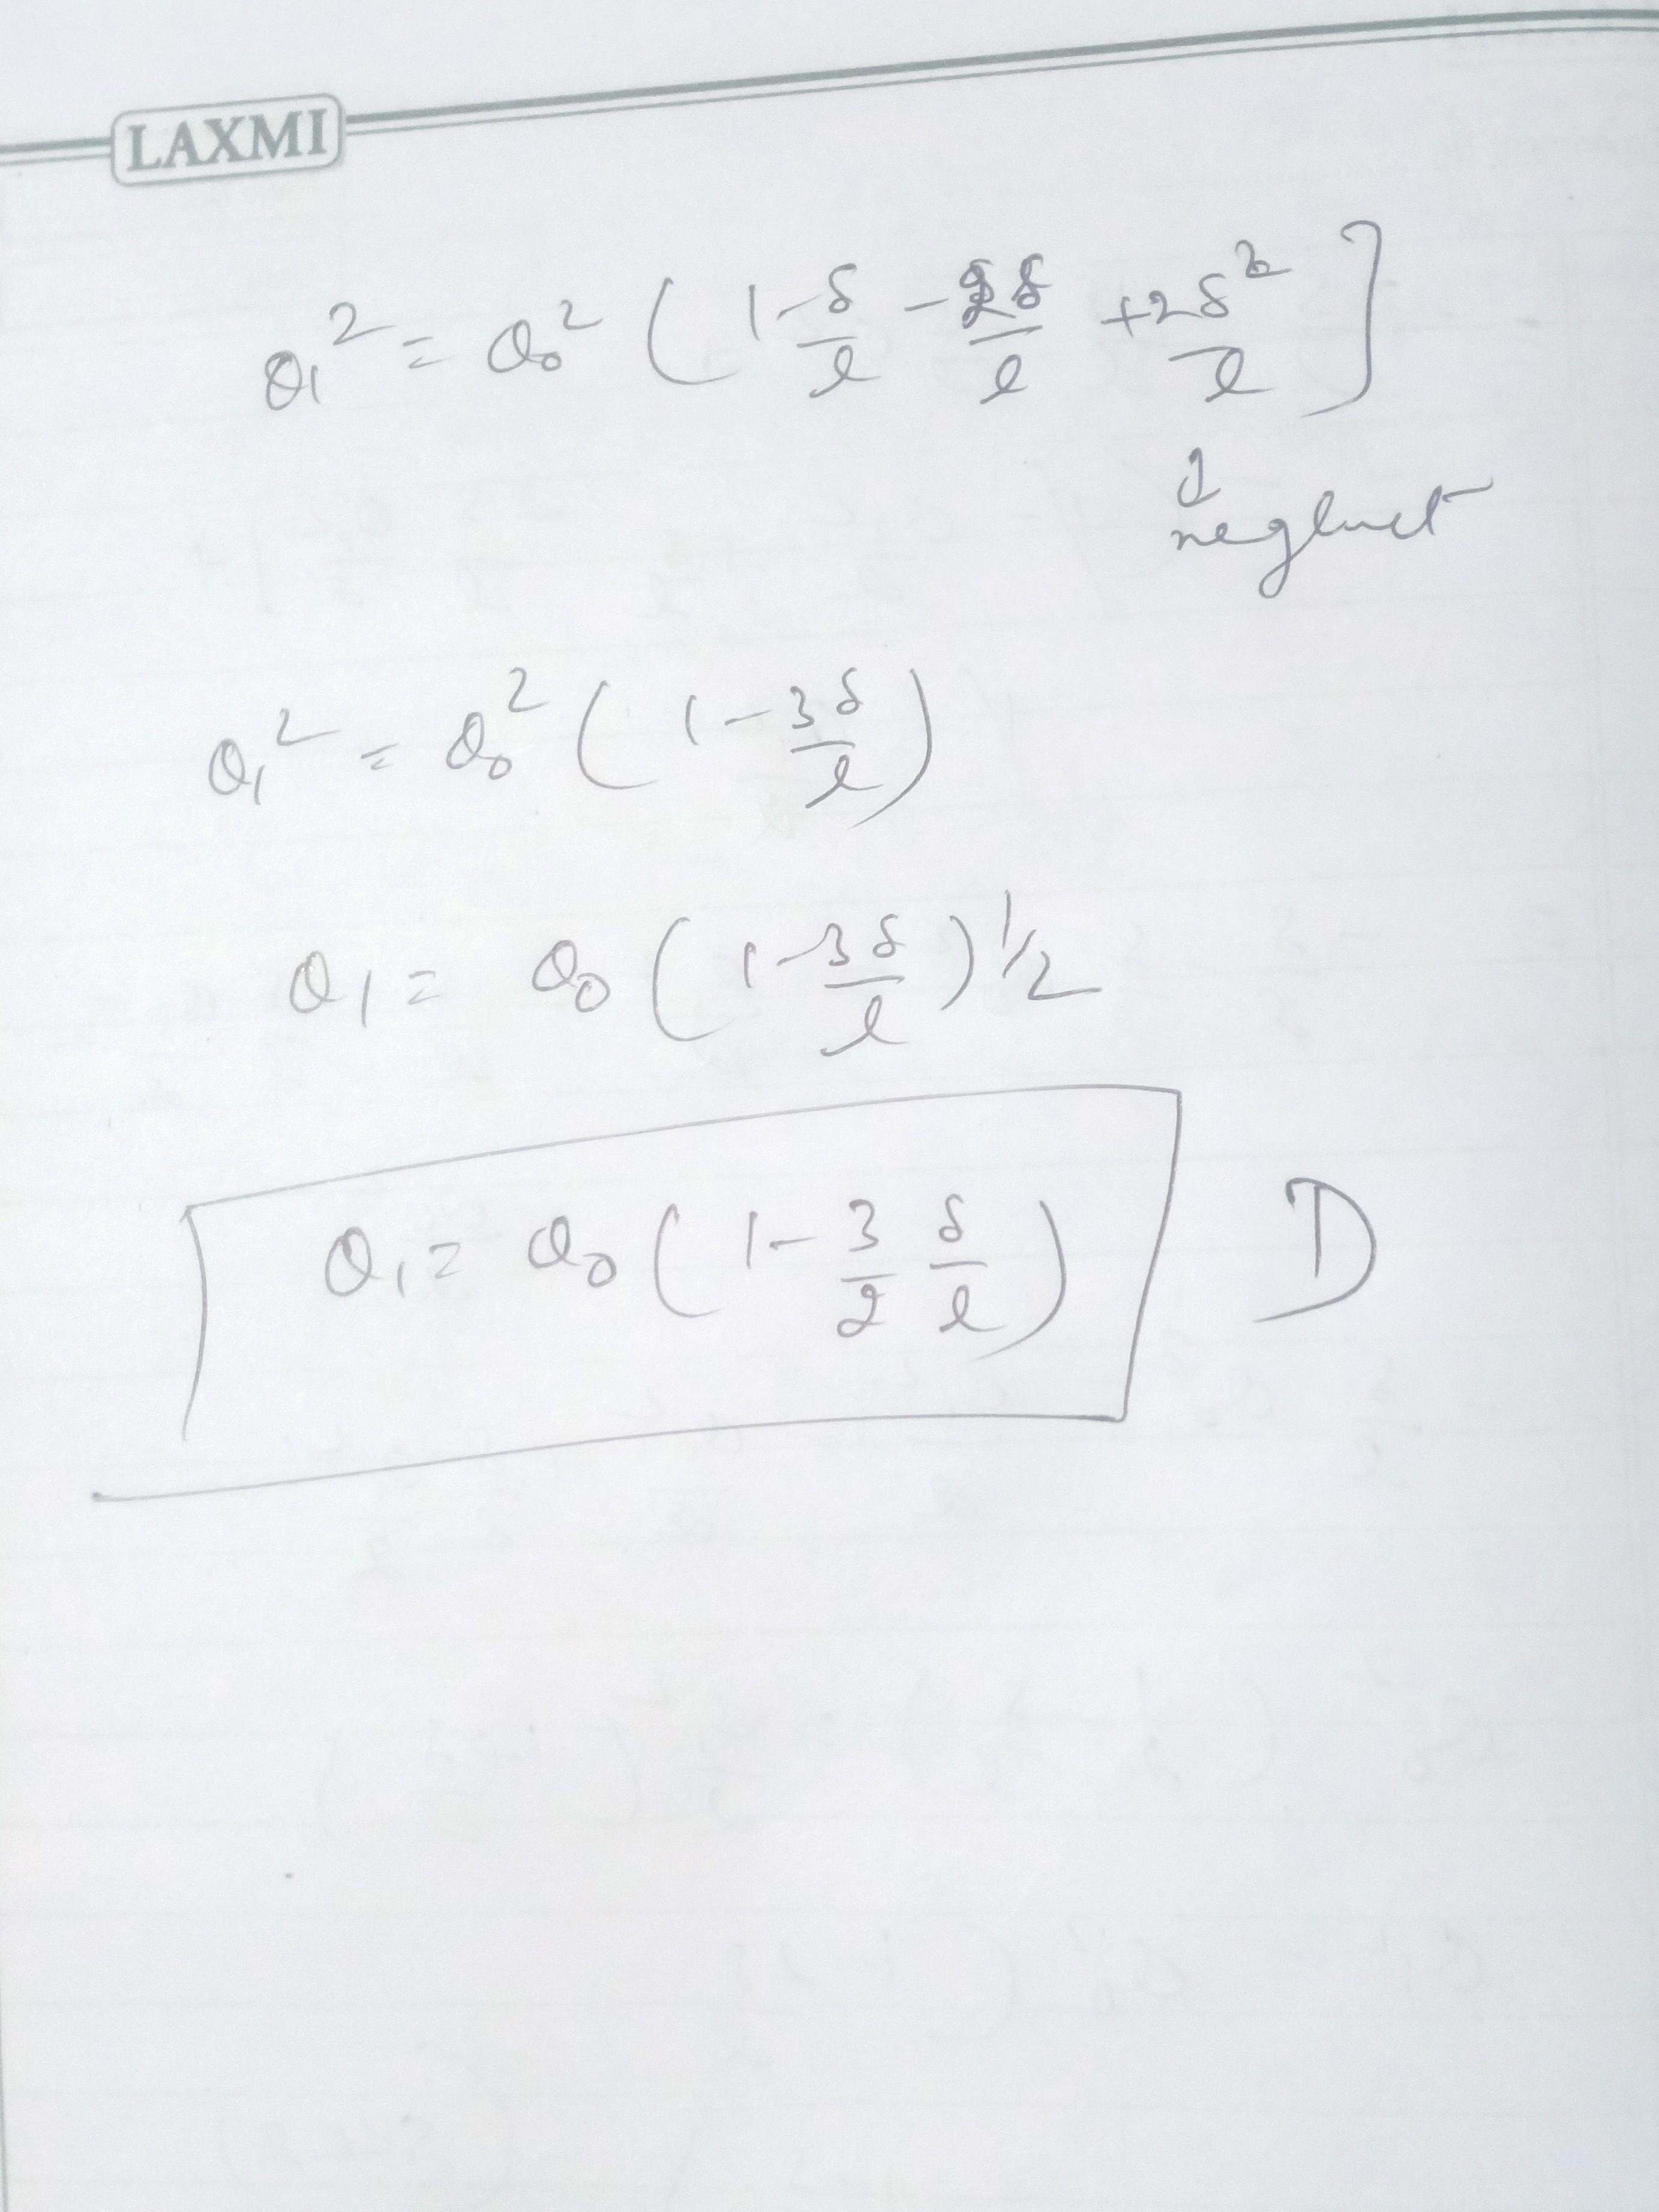 LAXMI
θ₁² = θ₀² ( 1 - δ/l - 2δ/l + 2δ²/l ]
↓
neglect
θ₁² = θ₀² ( 1 - 3δ/l )
θ₁ = θ₀ ( 1 - 3δ/l )^1/2
θ₁ = θ₀ ( 1 - 3/2 δ/l ) D